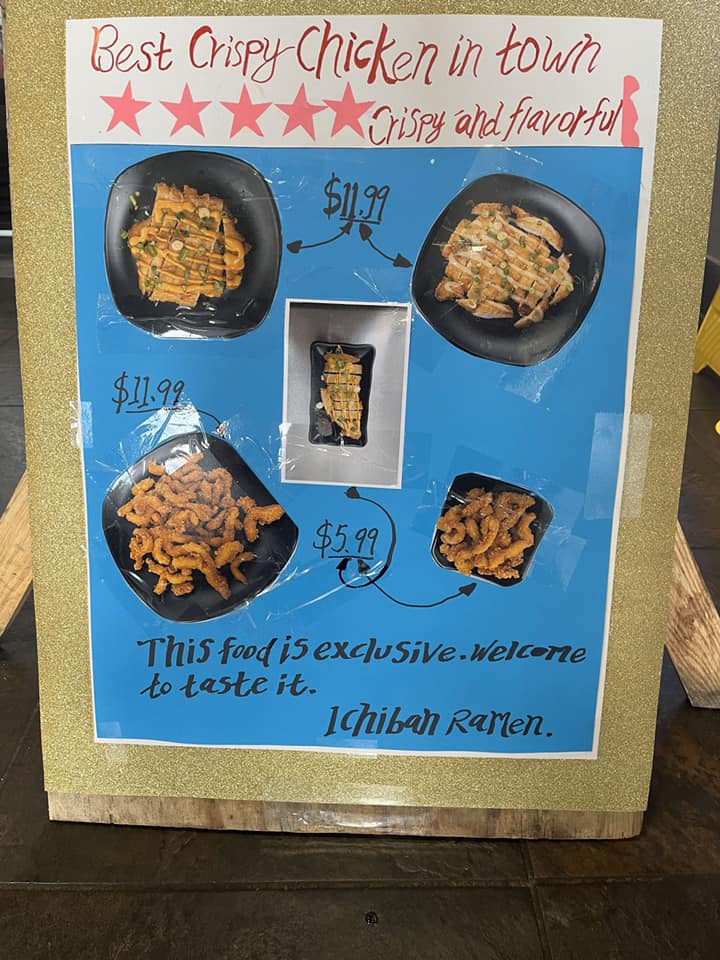 Best Crispy Chicken in town
Crispy and flavorful
$11.99
$11.99
$5.99
This food is exclusive. Welcome
to taste it.
Ichiban Ramen.